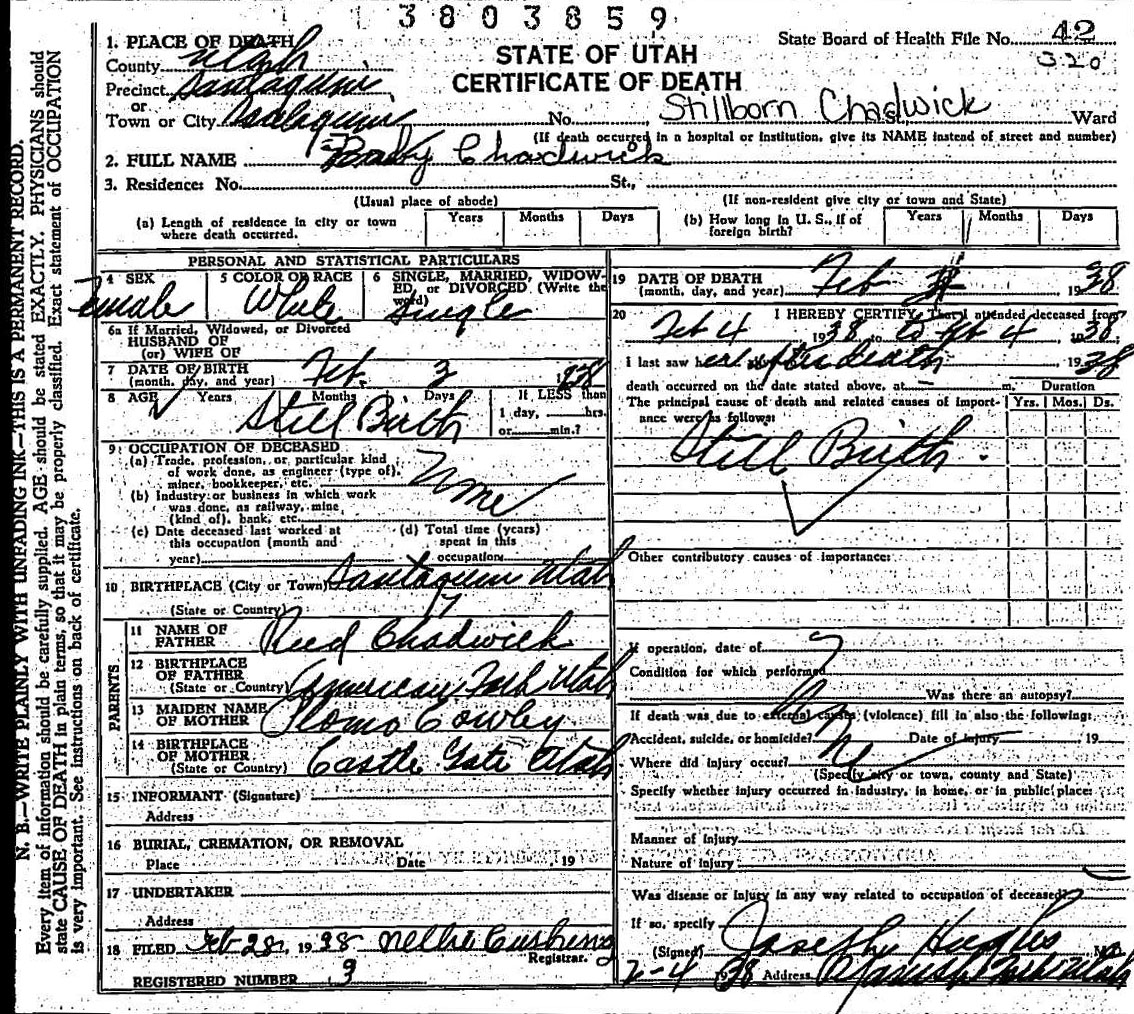 3803859
STATE OF UTAH
CERTIFICATE OF DEATH
State Board of Health File No. 42
320
1. PLACE OF DEATH
County Utah
Precinct Santaquin
or
Town or City Santaquin No. Stillborn Chadwick St., Ward
(If death occurred in a hospital or institution, give its NAME instead of street and number)
2. FULL NAME Baby Chadwick
3. Residence: No. St.,
(Usual place of abode) (If non-resident give city or town and State)
(a) Length of residence in city or town where death occurred. Years Months Days
(b) How long in U. S., if of foreign birth? Years Months Days
PERSONAL AND STATISTICAL PARTICULARS
4 SEX Female
5 COLOR OR RACE White
6 SINGLE, MARRIED, WIDOWED, or DIVORCED (Write the word) Single
6a If Married, Widowed, or Divorced
HUSBAND OF
(or) WIFE OF
7 DATE OF BIRTH
(month, day, and year) Feb. 3 1938
8 AGE Years Months Days If LESS than
1 day, hrs.
or min.?
Still Birth
9 OCCUPATION OF DECEASED
(a) Trade, profession, or particular kind
of work done, as engineer (type of),
miner, bookkeeper, etc. None
(b) Industry or business in which work
was done, as railway, mine
(kind of), bank, etc.
(c) Date deceased last worked at
this occupation (month and
year)
(d) Total time (years)
spent in this
occupation
10 BIRTHPLACE (City or Town) Santaquin Utah
(State or Country)
PARENTS
11 NAME OF
FATHER Reed Chadwick
12 BIRTHPLACE
OF FATHER
(State or Country) American Fork Utah
13 MAIDEN NAME
OF MOTHER Cowley
14 BIRTHPLACE
OF MOTHER
(State or Country) Castle Gate Utah
15 INFORMANT (Signature)
Address
16 BURIAL, CREMATION, OR REMOVAL
Place Date 19
17 UNDERTAKER
Address
18 FILED Feb 28, 1938 Nellie Cushing
Registrar.
REGISTERED NUMBER 3
19 DATE OF DEATH
(month, day, and year) Feb 1938
20 I HEREBY CERTIFY, That I attended deceased from
Feb 4 1938 to Feb 4 1938.
I last saw her after death 1938
death occurred on the date stated above, at m.
The principal cause of death and related causes of importance were as follows:
Duration
Yrs. Mos. Ds.
Still Birth.
Other contributory causes of importance:
If operation, date of
Condition for which performed
Was there an autopsy?
If death was due to external causes (violence) fill in also the following:
Accident, suicide, or homicide? Date of injury 19
Where did injury occur?
(Specify city or town, county and State)
Specify whether injury occurred in industry, in home, or in public place:
Manner of injury
Nature of injury
Was disease or injury in any way related to occupation of deceased?
If so, specify
(Signed) Joseph Hughes M.D.
2-4 1938 Address Spanish Fork Utah
N. B.—WRITE PLAINLY WITH UNFADING INK—THIS IS A PERMANENT RECORD.
Every item of information should be carefully supplied. AGE should be stated EXACTLY. PHYSICIANS should
state CAUSE OF DEATH in plain terms, so that it may be properly classified. Exact statement of OCCUPATION
is very important. See instructions on back of certificate.